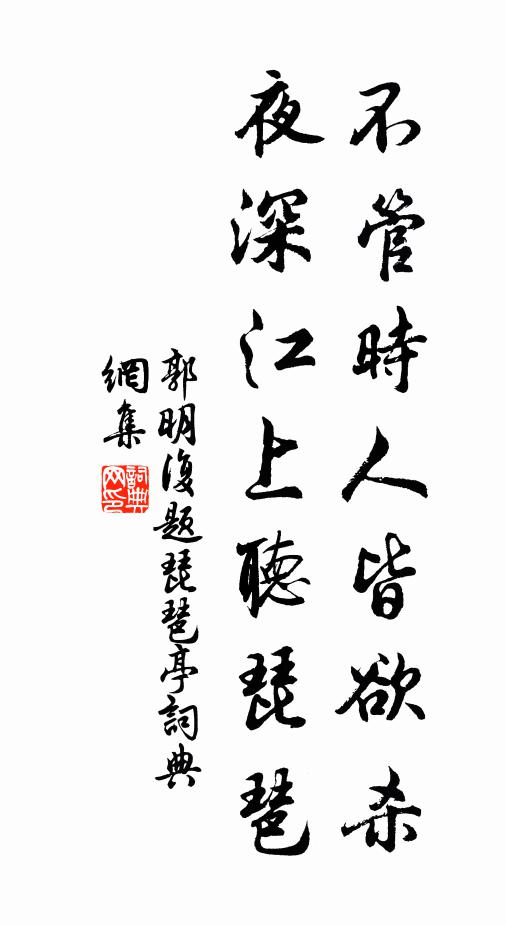 不管時人皆欲杀
夜深江上聽琵琶
郭明復題琵琶亭詞典
網集
詞典網印